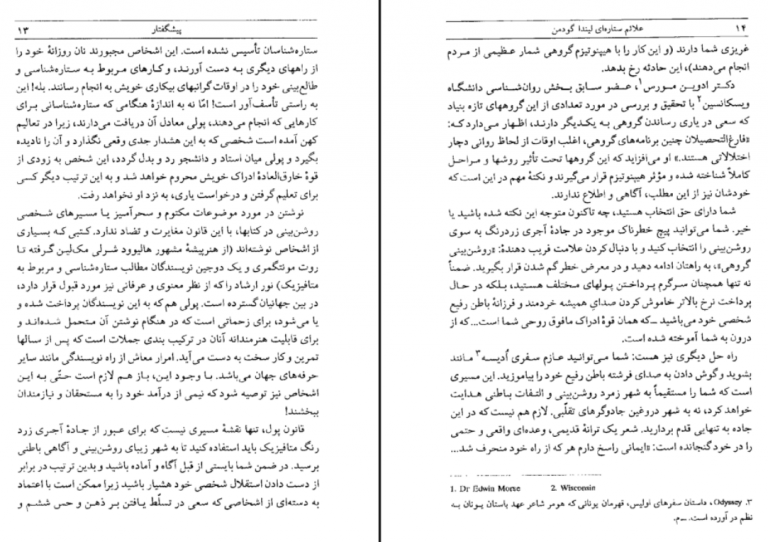 پیشگفتار ۱۳
ستاره‌شناسان تأسیس نشده است. این اشخاص مجبورند نان روزانهٔ خود را
از راههای دیگری به دست آورند، و کارهای مربوط به ستاره‌شناسی و
طالع‌بینی خود را در اوقات گرانبهای بیکاری خویش به انجام رسانند. بله! این
به راستی تأسف‌آور است! امّا نه به اندازهٔ هنگامی که ستاره‌شناسانی برای
کارهایی که انجام می‌دهند، پولی معادل آن دریافت می‌دارند، زیرا در تعالیم
کهن آمده است شخصی که به این هشدار جدی وقعی نگذارد و آن را نادیده
بگیرد و پولی میان استاد و دانشجو رد و بدل گردد، این شخص به زودی از
قوهٔ خارق‌العادهٔ ادراک خویش محروم خواهد شد و به این ترتیب دیگر کسی
برای تعلیم گرفتن و درخواست یاری، به نزد او نخواهد رفت.
نوشتن در مورد موضوعات مکتوم و سحرآمیز یا مسیرهای شخصی
روشن‌بینی در کتابها، با این قانون مغایرت و تضاد ندارد. کتبی که بسیاری
از اشخاص نوشته‌اند (از هنرپیشهٔ مشهور هالیوود شرلی مک‌لین گرفته تا
روت مونتگمری و یک دوجین نویسندگان مطالب ستاره‌شناسی و مربوط به
متافیزیک) نور ارشاد را که از نظر معنوی و عرفانی نیز مورد قبول قرار دارد،
در بین جهانیان گسترده است. پولی هم که به این نویسندگان پرداخت شده و
یا می‌شود، برای زحماتی است که در هنگام نوشتن آن متحمل شده‌اند و
برای قابلیت هنرمندانه آنان در ترکیب بندی جملات است که پس از سالها
تمرین و کار سخت به دست می‌آید. امرار معاش از راه نویسندگی مانند سایر
حرفه‌های جهان می‌باشد. با وجود این، باز هم لازم است حتّی به این
اشخاص نیز توصیه شود که نیمی از درآمد خود را به مستحقان و نیازمندان
ببخشند!
قانون پول، تنها نقشهٔ مسیری نیست که برای عبور از جادهٔ آجری زرد
رنگ متافیزیک باید استفاده کنید تا به شهر زیبای روشن‌بینی و آگاهی باطنی
برسید. در ضمن شما بایستی از قبل آگاه و آماده باشید و بدین ترتیب در برابر
از دست دادن استقلال شخصی خود هشیار باشید زیرا ممکن است با اعتماد
به دسته‌ای از اشخاصی که سعی در تسلّط یافتن بر ذهن و حس ششم و
۱۴ علائم ستاره‌ای لیندا گودمن
غریزی شما دارند (و این کار را با هیپنوتیزم گروهی شمار عظیمی از مردم
انجام می‌دهند)، این حادثه رخ بدهد.
دکتر ادوین مورس۱، عضو سابق بخش روان‌شناسی دانشگاه
ویسکانسین۲ با تحقیق و بررسی در مورد تعدادی از این گروههای تازه بنیاد
که سعی در یاری رساندن گروهی به یکدیگر دارند، اظهار می‌دارد که:
«فارغ‌التحصیلان چنین برنامه‌های گروهی، اغلب اوقات از لحاظ روانی دچار
اختلالاتی هستند.» او می‌افزاید که این گروهها تحت تأثیر روشها و مراحل
کاملاً شناخته شده و مؤثر هیپنوتیزم قرار می‌گیرند و نکتهٔ مهم در این است که
خودشان نیز از این مطلب، آگاهی و اطلاع ندارند.
شما دارای حق انتخاب هستید، چه تاکنون متوجه این نکته شده باشید یا
خیر. شما می‌توانید پیچ خطرناک موجود در جادهٔ آجری زردرنگ به سوی
روشن‌بینی را انتخاب کنید و با دنبال کردن علامت فریب دهندهٔ: «روشن‌بینی
گروهی»، به راهتان ادامه دهید و در معرض خطر گم شدن قرار بگیرید. ضمناً
نه تنها همچنان سرگرم پرداختن پولهای مختلف هستید، بلکه در حال
پرداخت نرخ بالاتر خاموش کردن صدای همیشه خردمند و فرزانهٔ باطن رفیع
شخصی خود می‌باشید ــ که همان قوهٔ ادراک مافوق روحی شما است... که از
درون به شما آموخته شده است.
راه حل دیگری نیز هست: شما می‌توانید عازم سفری اُدیسه۳ مانند
بشوید و گوش دادن به صدای فرشته باطن رفیع خود را بیاموزید. این مسیری
است که شما را مستقیماً به شهر زمرد روشن‌بینی و التفات باطنی هدایت
خواهد کرد، نه به شهر دروغین جادوگرهای تقلّبی. لازم هم نیست که در این
جاده به تنهایی قدم بردارید. شعر یک ترانهٔ قدیمی، وعده‌ای واقعی و حتمی
را در خود گنجانده است: «ایمانی راسخ دارم هر که از راه خود منحرف شد...
1. Dr Edwin Morse 2. Wisconsin
۳. Odyssey، داستان سفرهای اولیس، قهرمان یونانی که هومر شاعر عهد باستان یونان به
نظم در آورده است. ــ م.